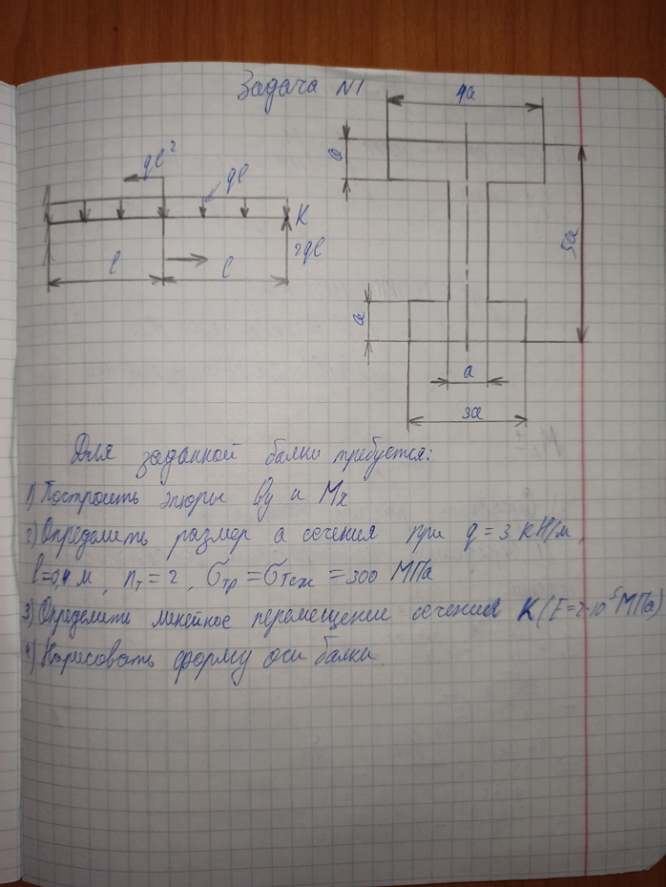 Задача N1
4a
a
ql²
ql
K
2ql
l
l
5a
a
a
3a
Для заданной балки требуется:
1) Построить эпюры Qy и Mx
2) Определить размер a сечения при q = 3 кН/м,
l=0,4 м, nт = 2, σтр = σтсж = 300 МПа
3) Определить линейное перемещение сечения K (E=2·10⁵ МПа)
4) Нарисовать форму оси балки.